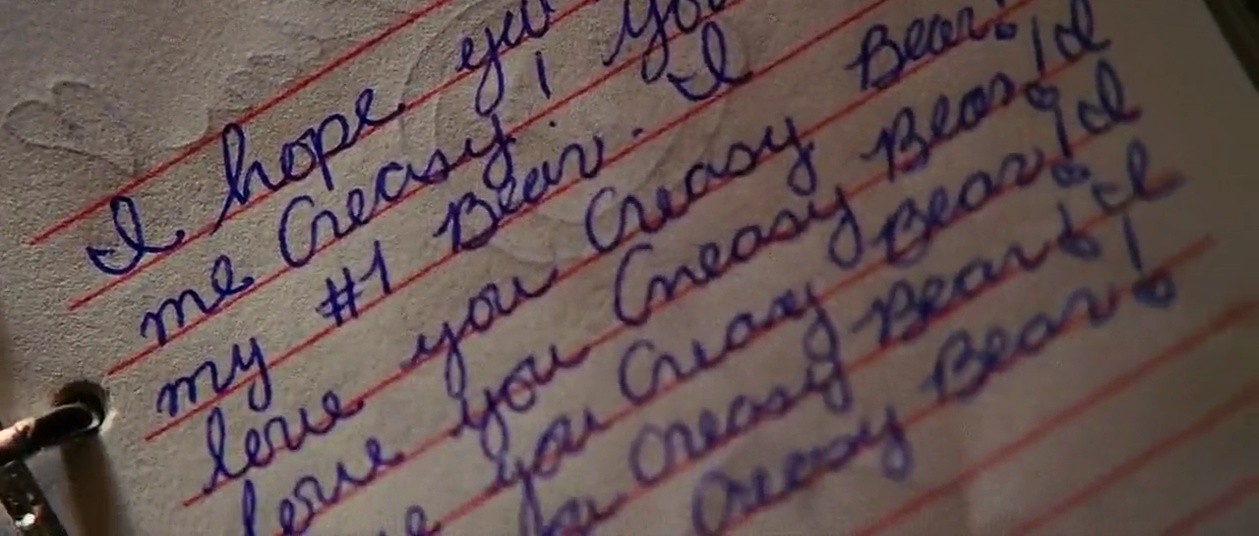 I hope
me Creasy! You
my #1 Bear. I
love you Creasy Bear!
love you Creasy Bear! I
you Creasy Bear! I
Creasy Bear! I
Creasy Bear!